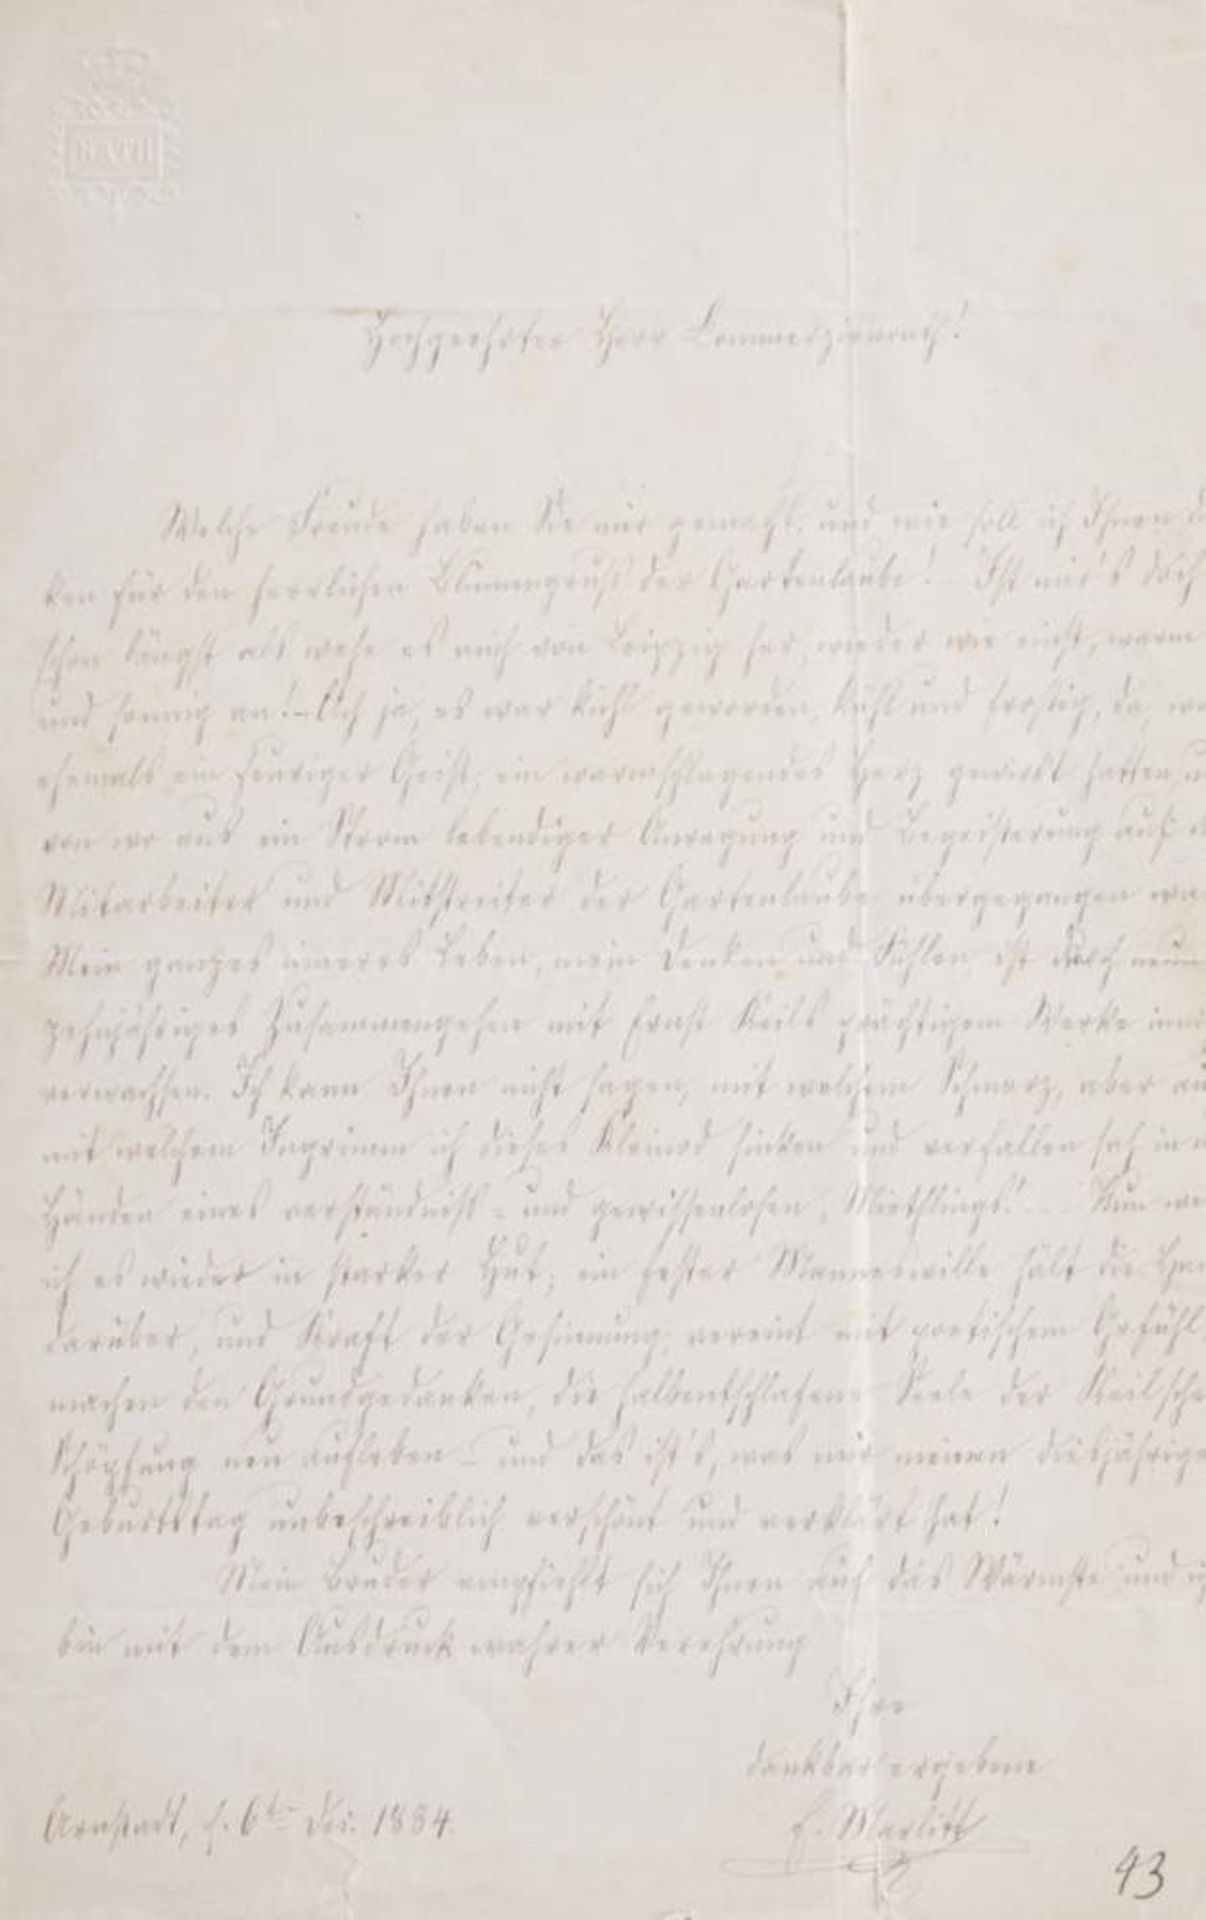 BATH
Hochgeehrter Herr Commerzienrath!
Welche Freude haben Sie mir gemacht, und wie soll ich Ihnen
ken für den herrlichen Blumengruß der Gartenlaube! – Ist mir's doch
schon längst als wehe es mich von Leipzig her, wieder wie einst, warm
und sonnig an! – Ach ja, es war kühl geworden, kühl und frostig, da, wo
ehemals ein feuriger Geist, ein warmschlagendes Herz gewirkt hatten,
von wo aus ein Strom lebendiger Anregung und Begeisterung auf
Mitarbeiter und Mitstreiter der Gartenlaube übergegangen
Mein ganzes inneres Leben, mein Denken und Fühlen ist durch neun
zehnjähriges Zusammengehen mit Ernst Keils prächtigem Werke
verwachsen. Ich kann Ihnen nicht sagen, mit welchem Schmerz, aber
mit welchem Ingrimm ich dieses Kleinod sinken und verfallen sah in
Händen eines verständniß- und gewissenlosen Miethlings! ... Nun
ich es wieder in starker Hut; ein fester Manneswille hält die
darüber, und Kraft der Gesinnung, vereint mit poetischem Gefühl
machen den Grundgedanken, die halbentschlafene Seele der
Schöpfung neu aufleben – und das ist's, was mir meinen
Geburtstag unbeschreiblich verschönt und verklärt hat!
Mein Bruder empfiehlt sich Ihnen auf das Wärmste und
bin mit dem Ausdruck wahrer Verehrung
Ihre
dankbar ergebene
E. Marlitt
Arnstadt, d. 6t 1884.
43